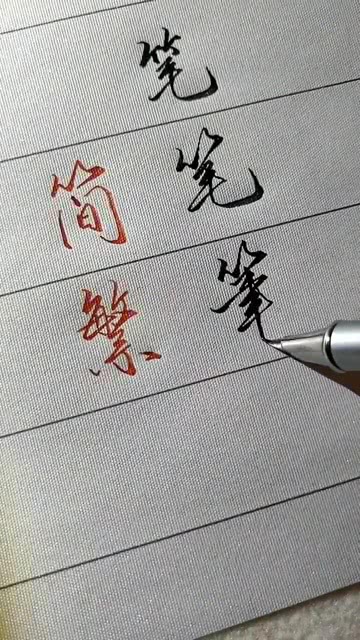 笔
简 笔
繁 筆